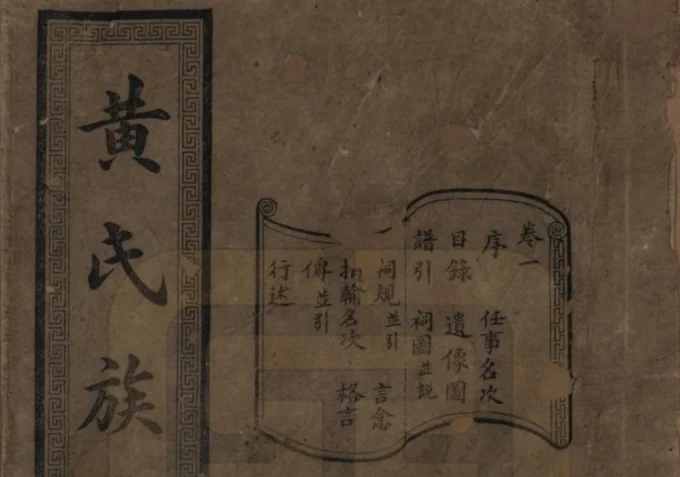 黄氏族
卷一
序 任事名次
目錄 遺像圖
譜引 祠圖並説
祠規並引 言念
捐輸名次 格言
傳並引
行述